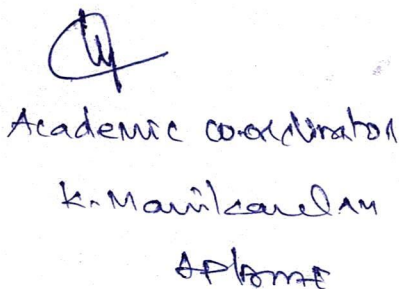 Academic co-ordinator
K. Manikandan
AP/BME